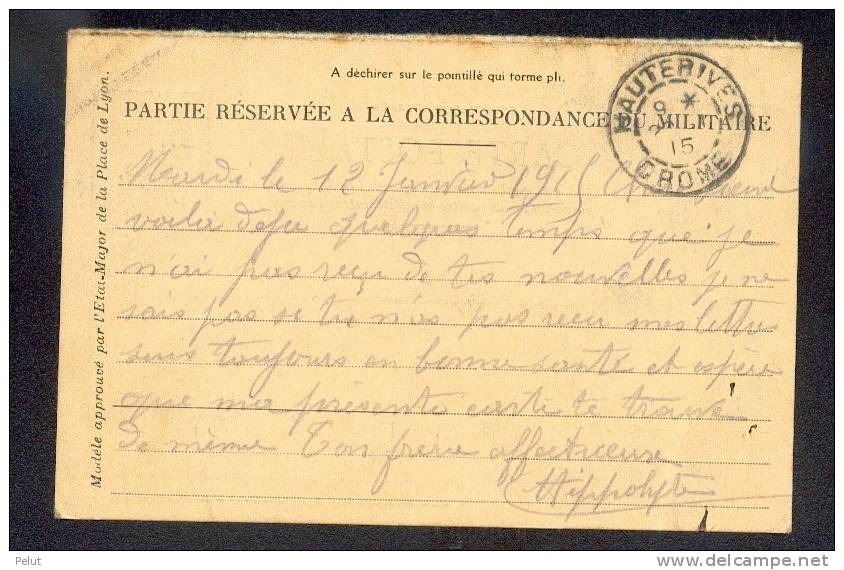 A déchirer sur le pointillé qui forme pli.
PARTIE RÉSERVÉE A LA CORRESPONDANCE DU MILITAIRE
HAUTERIVES
9 *
15
DROME
Modèle approuvé par l'Etat-Major de la Place de Lyon.
Mardi le 12 Janvier 1915
voila deja quelques temps que je
n'ai pas reçu de tes nouvelles je ne
sais pas si tu n'as pas reçu mes lettres
suis toujours en bonne santé et espère
que ma présente carte te trouve
de même Ton frère affectueux
Hippolyte
Pelut
delcampe.net